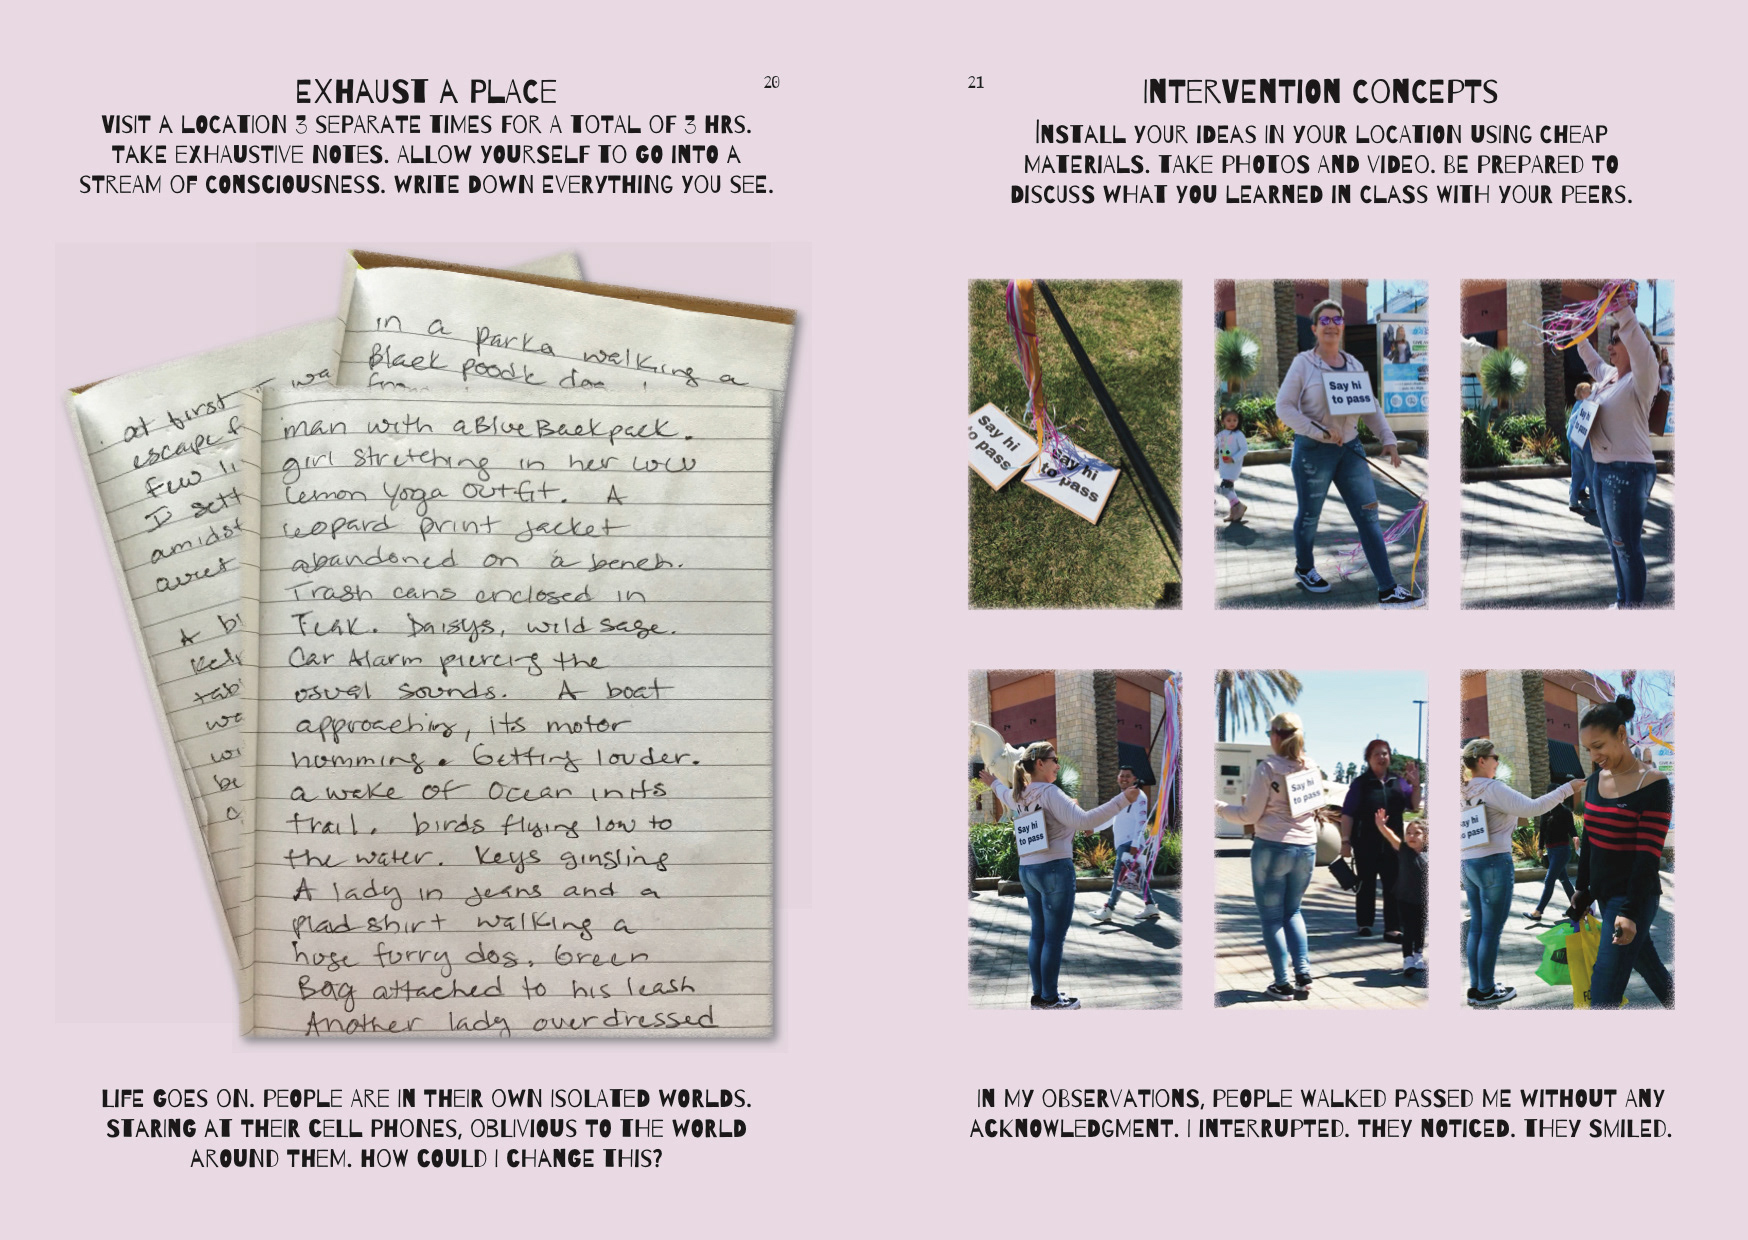 EXHAUST A PLACE
20
VISIT A LOCATION 3 SEPARATE TIMES FOR A TOTAL OF 3 HRS.
TAKE EXHAUSTIVE NOTES. ALLOW YOURSELF TO GO INTO A
STREAM OF CONSCIOUSNESS. WRITE DOWN EVERYTHING YOU SEE.
in a parka walking a
Black poodle dog
at first
escape
Few
I sett
amidst
A
man with a Blue Backpack.
girl stretching in her
Lemon Yoga Outfit. A
leopard print jacket
abandoned on a bench.
Trash cans enclosed in
Teak. Daisys, wild sage.
Car Alarm piercing the
usual sounds. A boat
approaching, its motor
homming. Getting louder.
a wake of Ocean in its
trail. birds flying low to
the water. Keys ginsling
A lady in jeans and a
plad shirt walking a
huge furry dog. Green
Bag attached to his leash
Another lady overdressed
LIFE GOES ON. PEOPLE ARE IN THEIR OWN ISOLATED WORLDS.
STARING AT THEIR CELL PHONES, OBLIVIOUS TO THE WORLD
AROUND THEM. HOW COULD I CHANGE THIS?
21
INTERVENTION CONCEPTS
INSTALL YOUR IDEAS IN YOUR LOCATION USING CHEAP
MATERIALS. TAKE PHOTOS AND VIDEO. BE PREPARED TO
DISCUSS WHAT YOU LEARNED IN CLASS WITH YOUR PEERS.
Say hi
to pass
Say hi
to pass
Say hi
to pass
Say hi
to pass
Say hi
to pass
Say hi
to pass
Say hi
to pass
IN MY OBSERVATIONS, PEOPLE WALKED PASSED ME WITHOUT ANY
ACKNOWLEDGMENT. I INTERRUPTED. THEY NOTICED. THEY SMILED.